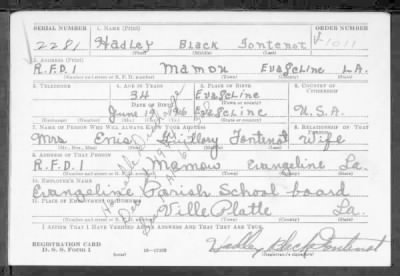 SERIAL NUMBER 1. NAME (Print) ORDER NUMBER
2281 Hadley Black Fontenot V1011
(First) (Middle) (Last)
2. ADDRESS (Print)
R.F.D.1 Mamou Evangeline LA.
(Number and street or R. F. D. number) (Town) (County) (State)
3. TELEPHONE 4. AGE IN YEARS 5. PLACE OF BIRTH 6. COUNTRY OF CITIZENSHIP
34 Evangeline
DATE OF BIRTH (Town or county)
June 19, 06 La U.S.A.
(Mo.) (Day) (Yr.) (State or country)
7. NAME OF PERSON WHO WILL ALWAYS KNOW YOUR ADDRESS 8. RELATIONSHIP OF THAT PERSON
Mrs Guillory Fontenot Wife
(Mr., Mrs., Miss) (First) (Middle) (Last)
9. ADDRESS OF THAT PERSON
R.F.D.1 Mamou Evangeline La.
(Number and street or R. F. D. number) (Town) (County) (State)
10. EMPLOYER'S NAME
Evangeline Parish School board
11. PLACE OF EMPLOYMENT OR BUSINESS
Ville Platte La.
(Number and street or R. F. D. number) (Town) (County) (State)
I AFFIRM THAT I HAVE VERIFIED ABOVE ANSWERS AND THAT THEY ARE TRUE.
REGISTRATION CARD
D. S. S. Form 1 (over) Hadley Black Fontenot
(Registrant's signature)